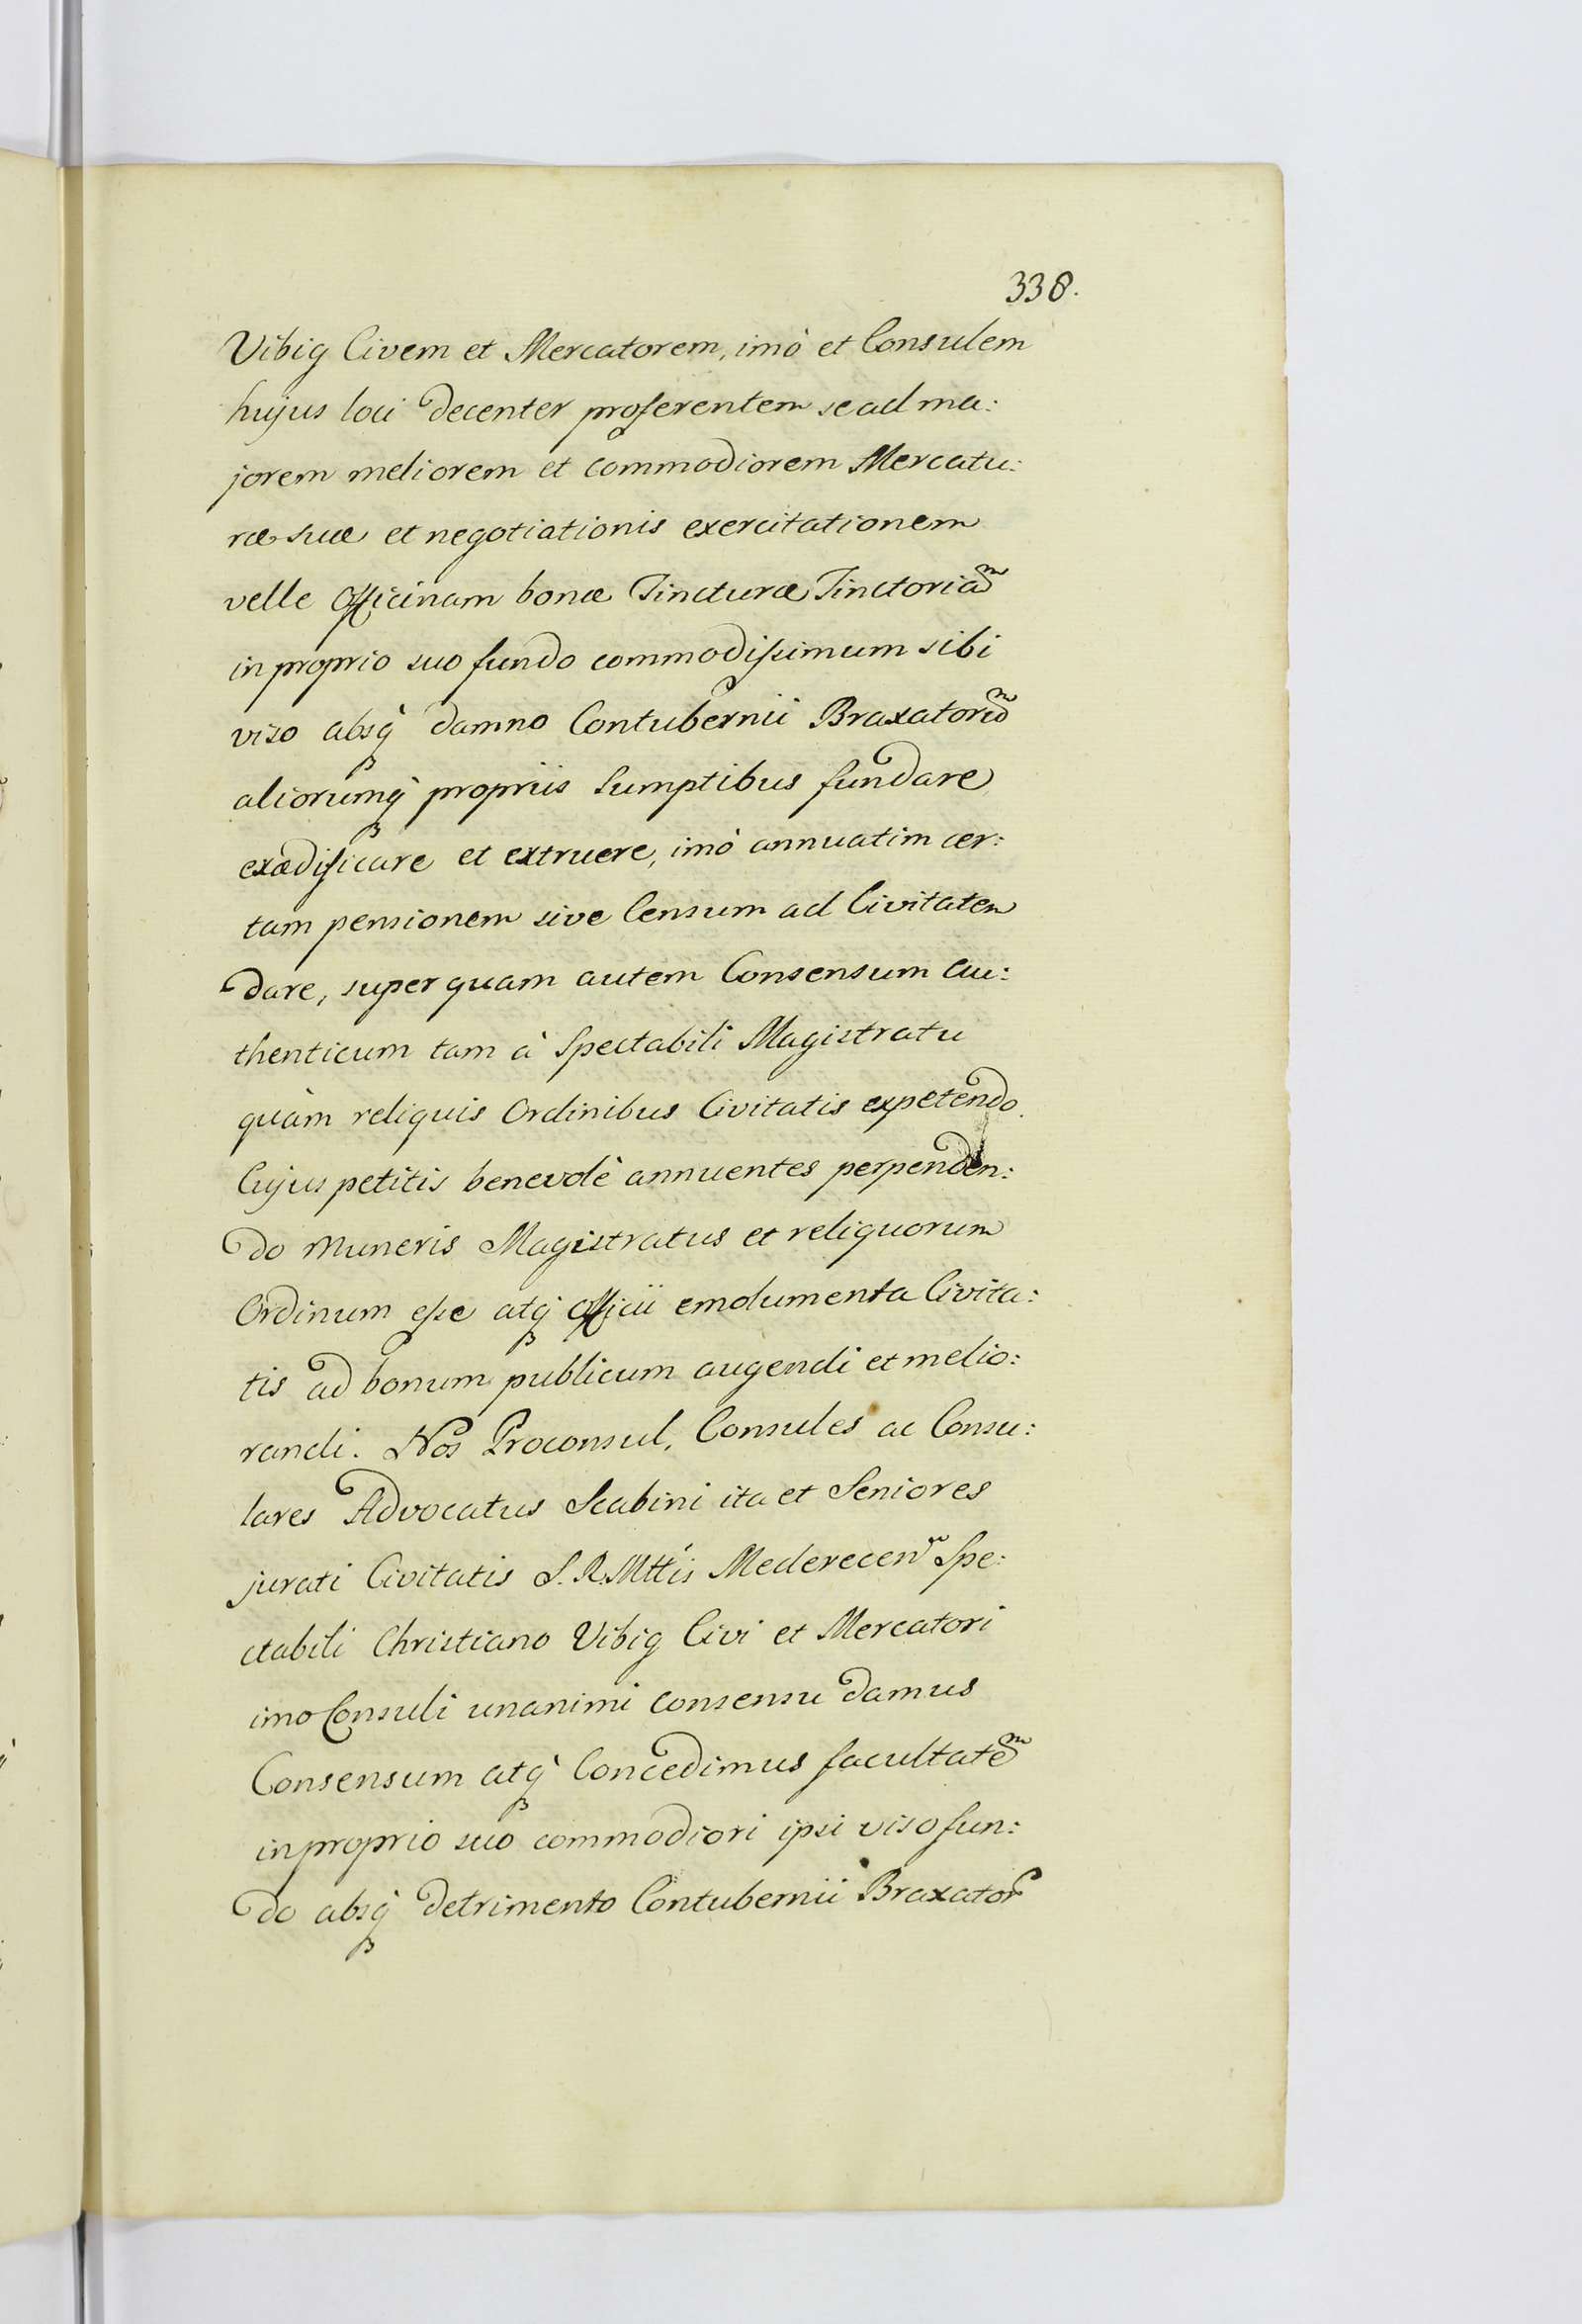 338.
Vibig Civem et Mercatorem, imò et Consulem
hujus loci decenter proferentem se ad ma:
jorem meliorem et commodiorem Mercatu:
ræ suæ et negotiationis exercitationem
velle Officinam bonæ Tincturæ Tinctoriam
in proprio suo fundo commodissimum sibi
viso absq̀ damno Contubernii Braxatorum
aliorumq̀ propriis Sumptibus fundare
exædificare et extruere, imò annuatim cer:
tam pensionem sive Censum ad Civitatem
dare, super quam autem Consensum au:
thenticum tam à Spectabili Magistratu
quàm reliquis Ordinibus Civitatis expetendo.
Cujus petitis benevolè annuentes perpenden:
do muneris Magistratus et reliquorum
Ordinum esse atq̀ Officii emolumenta Civita:
tis ad bonum publicum augendi et melio:
randi. Nos Proconsul, Consules ac Consu:
lares Advocatus Scabini ita et Seniores
jurati Civitatis S. R. Mttis Mederecen̄ Spe:
ctabili Christiano Vibig Civi et Mercatori
imo Consuli unanimi consensu damus
Consensum atq̀ Concedimus facultatem
in proprio suo commodiori ipsi viso fun:
do absq̀ detrimento Contubernii Braxator